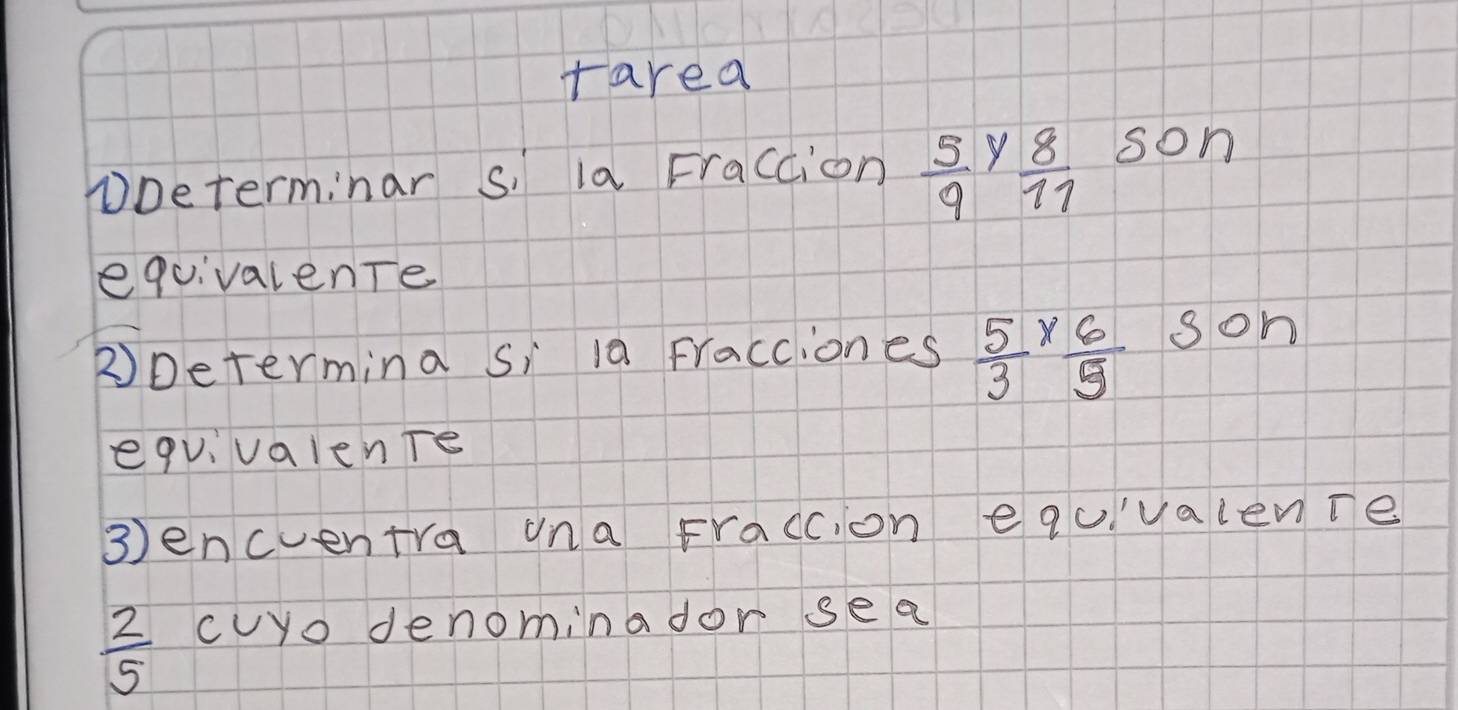 tarea
1) Determinar si la Fraccion 5/9 y 8/11 son
equivalente
2) Determina si la Fracciones 5/3 y 6/5 son
equivalente
3) encuentra una Fraccion equivalente
2/5 cuyo denominador sea